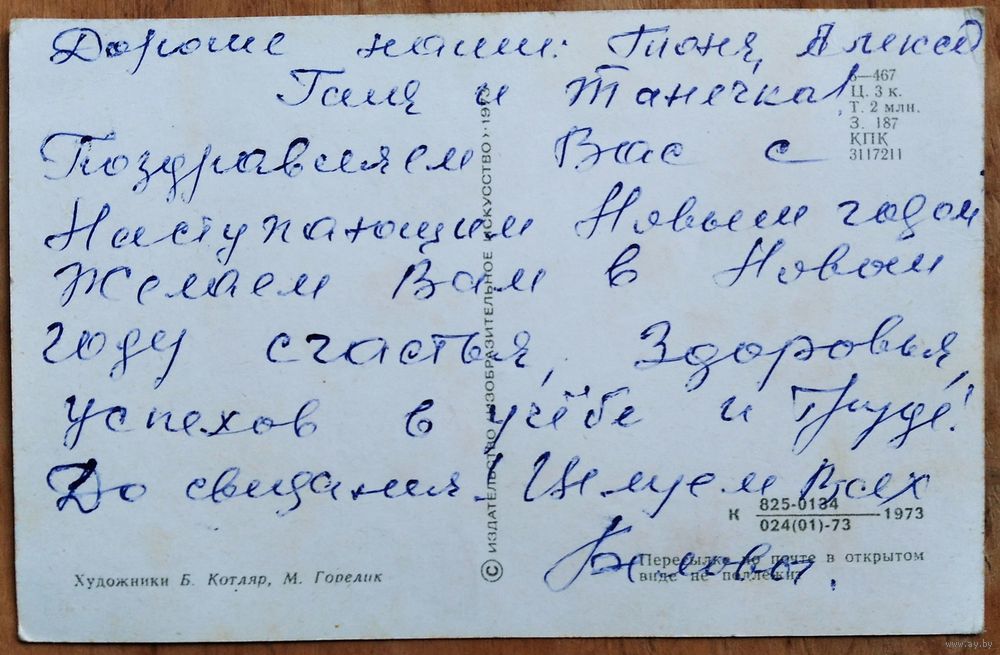 Дорогие наши: Тоня, Алексад
Галя и Танечка!
Поздравляем Вас с
Наступающим Новым годом
Желаем Вам в Новом
году счастья, Здоровья,
успехов в учёбе и Труде!
До свидания. Целуем Всех
6—467
Ц. 3 к.
Т. 2 млн.
З. 187
КПК
3117211
© ИЗДАТЕЛЬСТВО «ИЗОБРАЗИТЕЛЬНОЕ ИСКУССТВО» 1973
К 825-0134
024(01)-73 1973
Пересылке по почте в открытом
виде не подлежит
Художники Б. Котляр, М. Горелик
www.ay.by